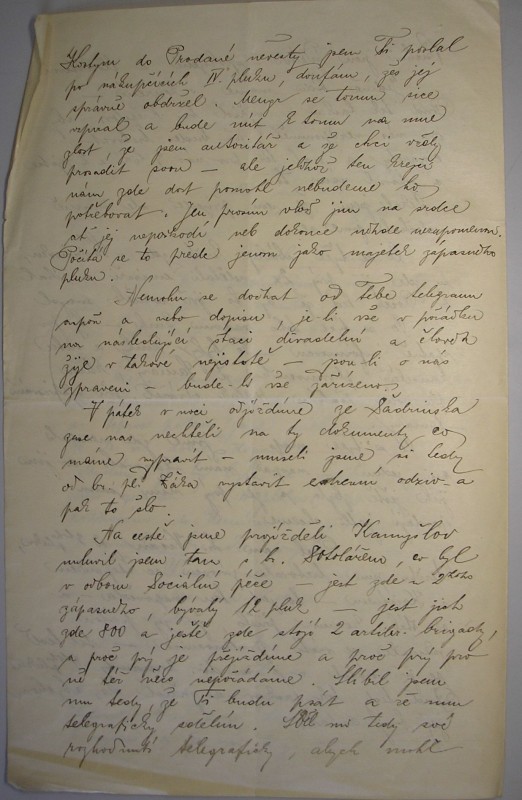 Kostym do Prodané nevesty jsem Ti poslal
po nákupčících IV. pluku, doufám, žes jej
správně obdržel. Menyr se tomu sice
vzpíral a bude mít k tomu na mne
zlost, že jsem autoritář a že chci vždy
prosadit svou — ale jelikož ten krejčí
nám zde dost pomohl nebudeme ho
potřebovat. Jen, prosím vlož jim na srdce
ať jej nepoškodí neb dokonce někde nezapomenou.
Počítá se to přede jenom jako majetek zápasného
pluku.
Nemohu se dočkat od Tebe telegramu
aspoň a nebo dopisu, je-li vše v pořádku
na následující staci divadelní a člověk
žije v takové nejistotě — jsou-li o nás
zpraveni — bude-li vše zařízeno.
V pátek v noci odjíždíme ze Šadrinska
zase nás nechtěli na ty dokumenty co
máme vypravit — museli jsme si tedy
od br. pl. Žáka vystavit extresní odziv a
pak to šlo.
Na cestě jsme projížděli Kamyšlov
mluvil jsem tam s br. Stolářem, co byl
v odboru Sociální péče — jest zde u 2ho
zápasného, bývalý 12 pluk — jest jich
zde 800 a ještě zde stojí 2 artiler. brigady,
a proč prý je přejíždíme a proč prý pro
ně též něco nepořádáme. Slíbil jsem
mu tedy, že Ti budu psát a že mu
telegraficky sdělím. Sděl mi tedy své
rozhodnutí telegraficky, abych mohl